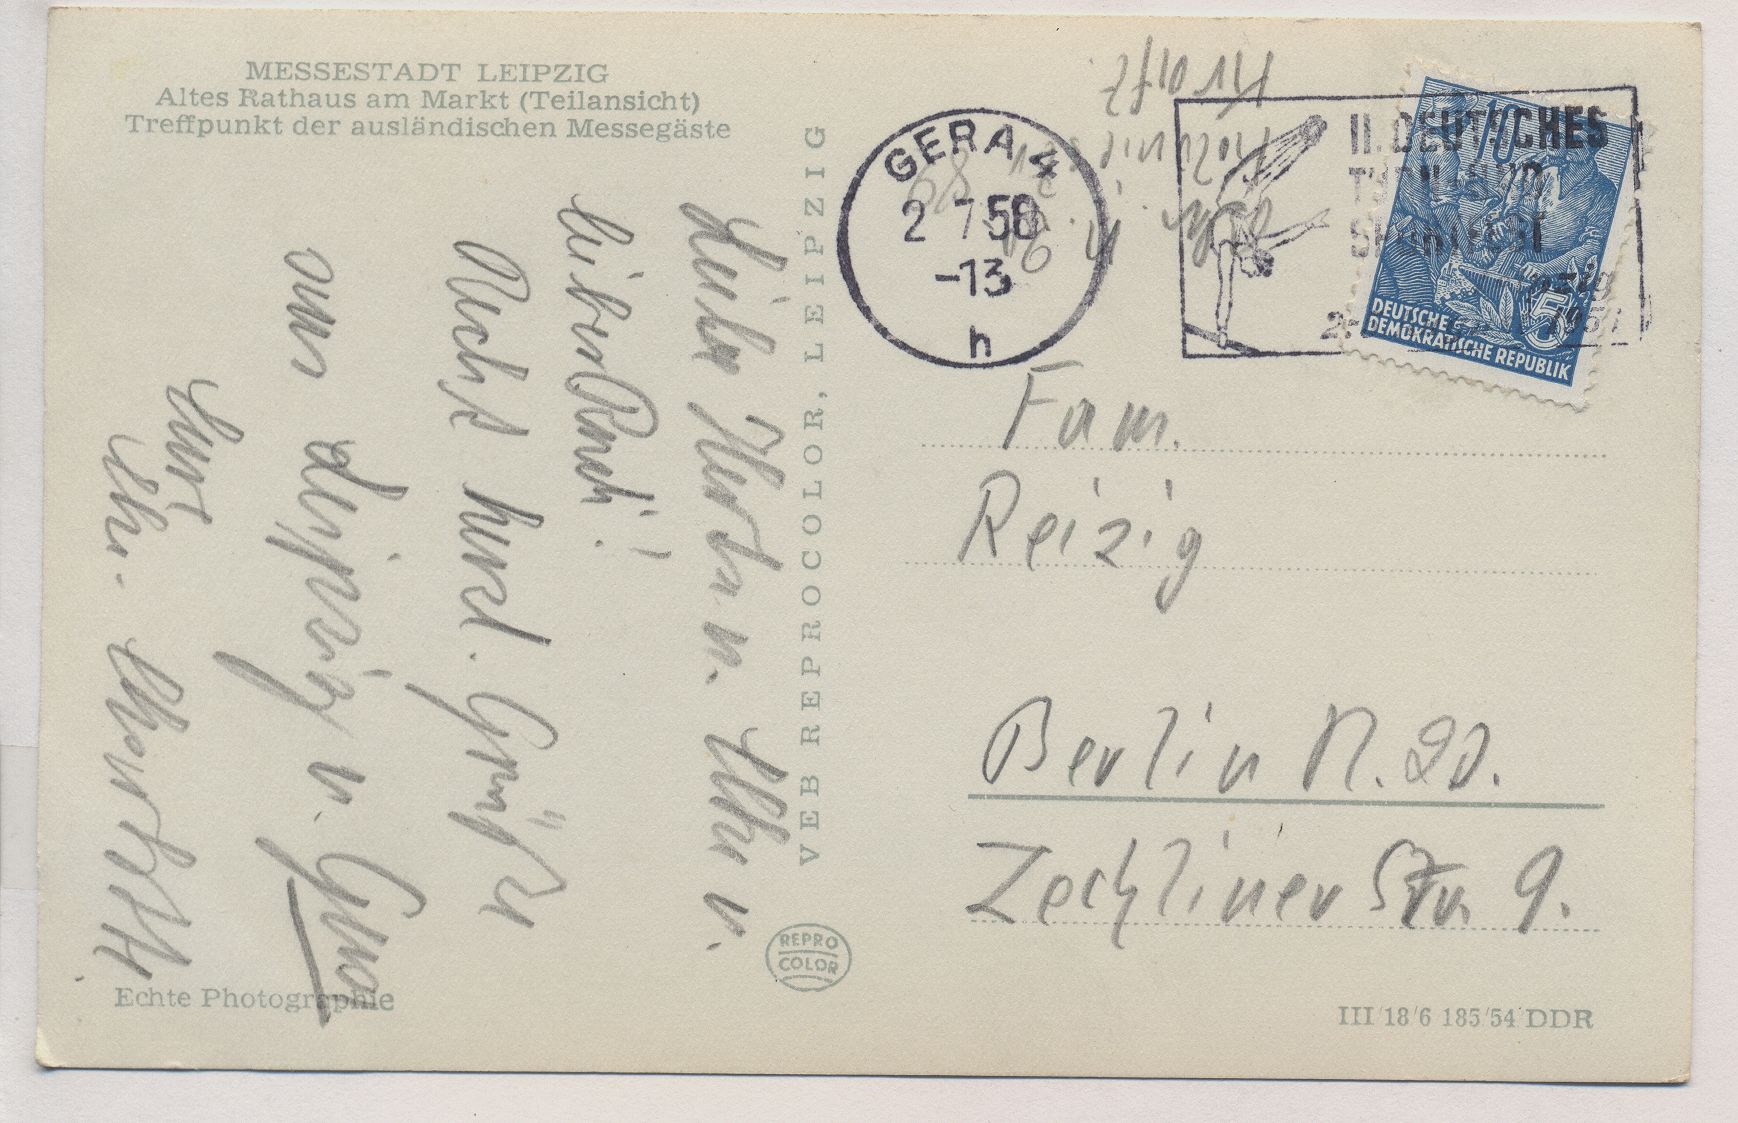 MESSESTADT LEIPZIG
Altes Rathaus am Markt (Teilansicht)
Treffpunkt der ausländischen Messegäste
Liebe Herta u. Ilse u.
lieber
Recht herzl. Grüße
aus Leipzig u. Gera
Eure
Echte Photographie
VEB REPROCOLOR, LEIPZIG
REPRO
COLOR
GERA 4
2 7 58
-13
h
II. DEUTSCHES
TURN- UND
SPORTFEST
DEUTSCHE
DEMOKRATISCHE REPUBLIK
5
Fam.
Reizig
Berlin N. 20.
Zechliner Str. 9.
III/18/6 185/54 DDR